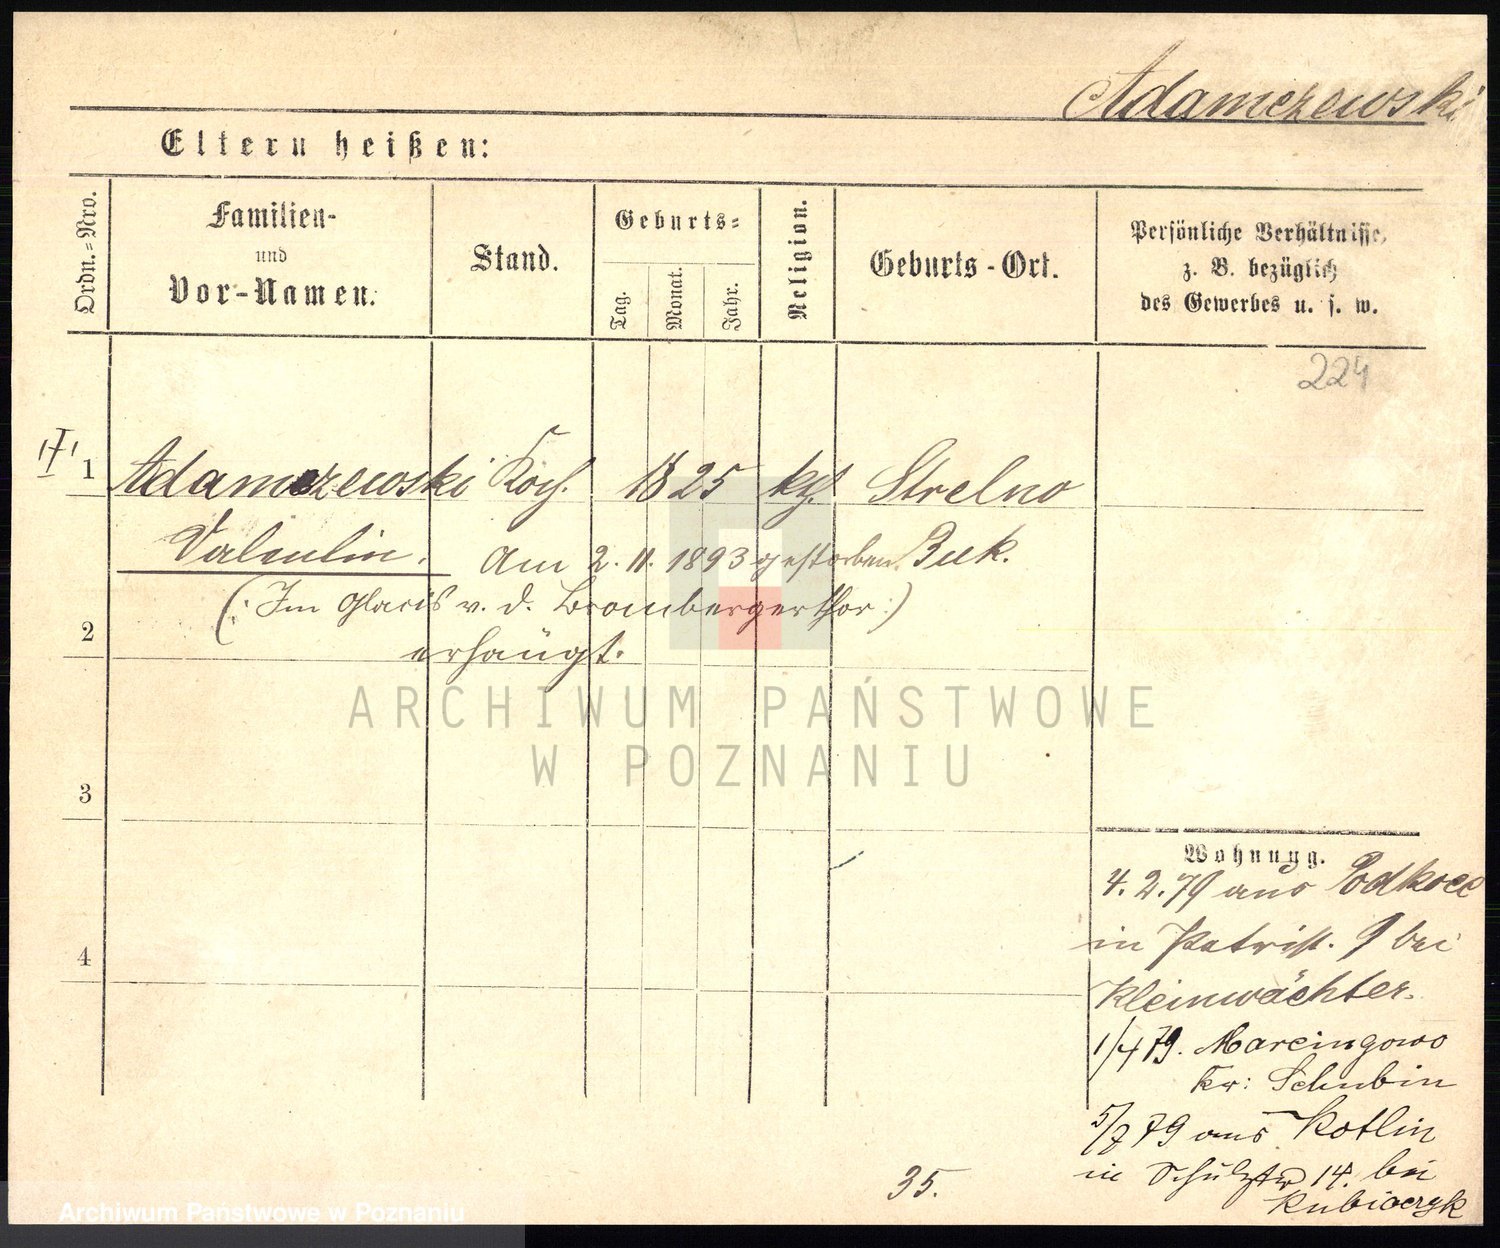 Adamczewski
Eltern heißen:
Ordn.=Nro.
Familien-
und
Vor-Namen.
Stand.
Geburts=
Tag.
Monat.
Jahr.
Religion.
Geburts-Ort.
Persönliche Verhältnisse,
z. B. bezüglich
des Gewerbes u. s. w.
224
1 Adamczewski Koch. 1825 kth Strelno
Valentin. Am 2. 11. 1893 gestorben. Buk.
(: Im Glacis v. d. Brombergerthor :)
2
erhängt.
ARCHIWUM PAŃSTWOWE
W POZNANIU
3
Wohnung.
4. 2. 79 aus
4
in Petrist. 9 bei
Kleinwächter.
1/4 79. Marcingowo
Kr: Schubin
5/7 79 aus Kotlin
in 14. bei
Kubiaczyk
35.
Archiwum Państwowe w Poznaniu